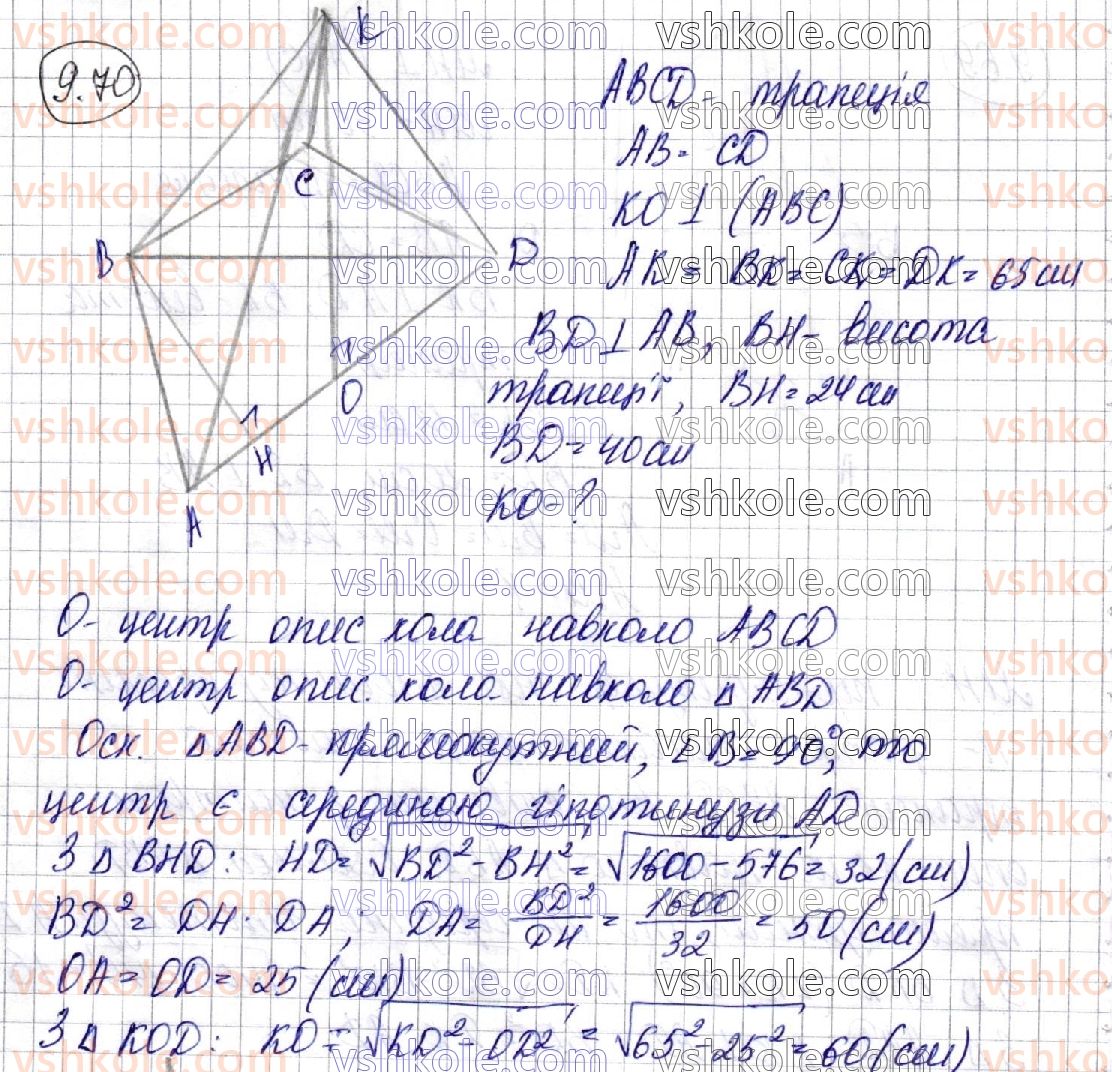 9.70
K
C
B
D
O
H
A
ABCD - трапеція
AB = CD
KO ⊥ (ABC)
AK = BK = CK = DK = 65 см
BD ⊥ AB, BH - висота
трапеції, BH = 24 см
BD = 40 см
KO - ?
O - центр опис кола навколо ABCD
O - центр опис. кола навколо △ ABD
Оск. △ ABD - прямокутний, ∠B = 90°, то
центр є серединою гіпотинузи AD
З △ BHD: HD = √BD² - BH² = √1600 - 576 = 32 (см)
BD² = DH · DA; DA = BD²/DH = 1600/32 = 50 (см)
OA = OD = 25 (см)
З △ KOD: KO = √KD² - OD² = √65² - 25² = 60 (см)
vshkole.com